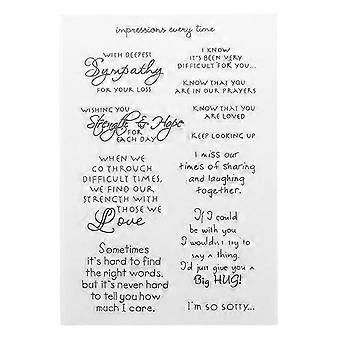 impressions every time
WITH DEEPEST
Sympathy
FOR YOUR LOSS
WISHING YOU
Strength & Hope
FOR
EACH DAY
WHEN WE
GO THROUGH
DIFFICULT TIMES,
WE FIND OUR
STRENGTH WITH
THOSE WE
Love
Sometimes
it's hard to find
the right words,
but it's never hard
to tell you how
much I care.
I KNOW
IT'S BEEN VERY
DIFFICULT FOR YOU...
KNOW THAT YOU
ARE IN OUR PRAYERS
KNOW THAT YOU
ARE LOVED
KEEP LOOKING UP
I miss our
times of sharing
and laughing
together.
If I could
be with you
I wouldn't try to
say a thing.
I'd just give you a
Big HUG!
I'm so sorry...